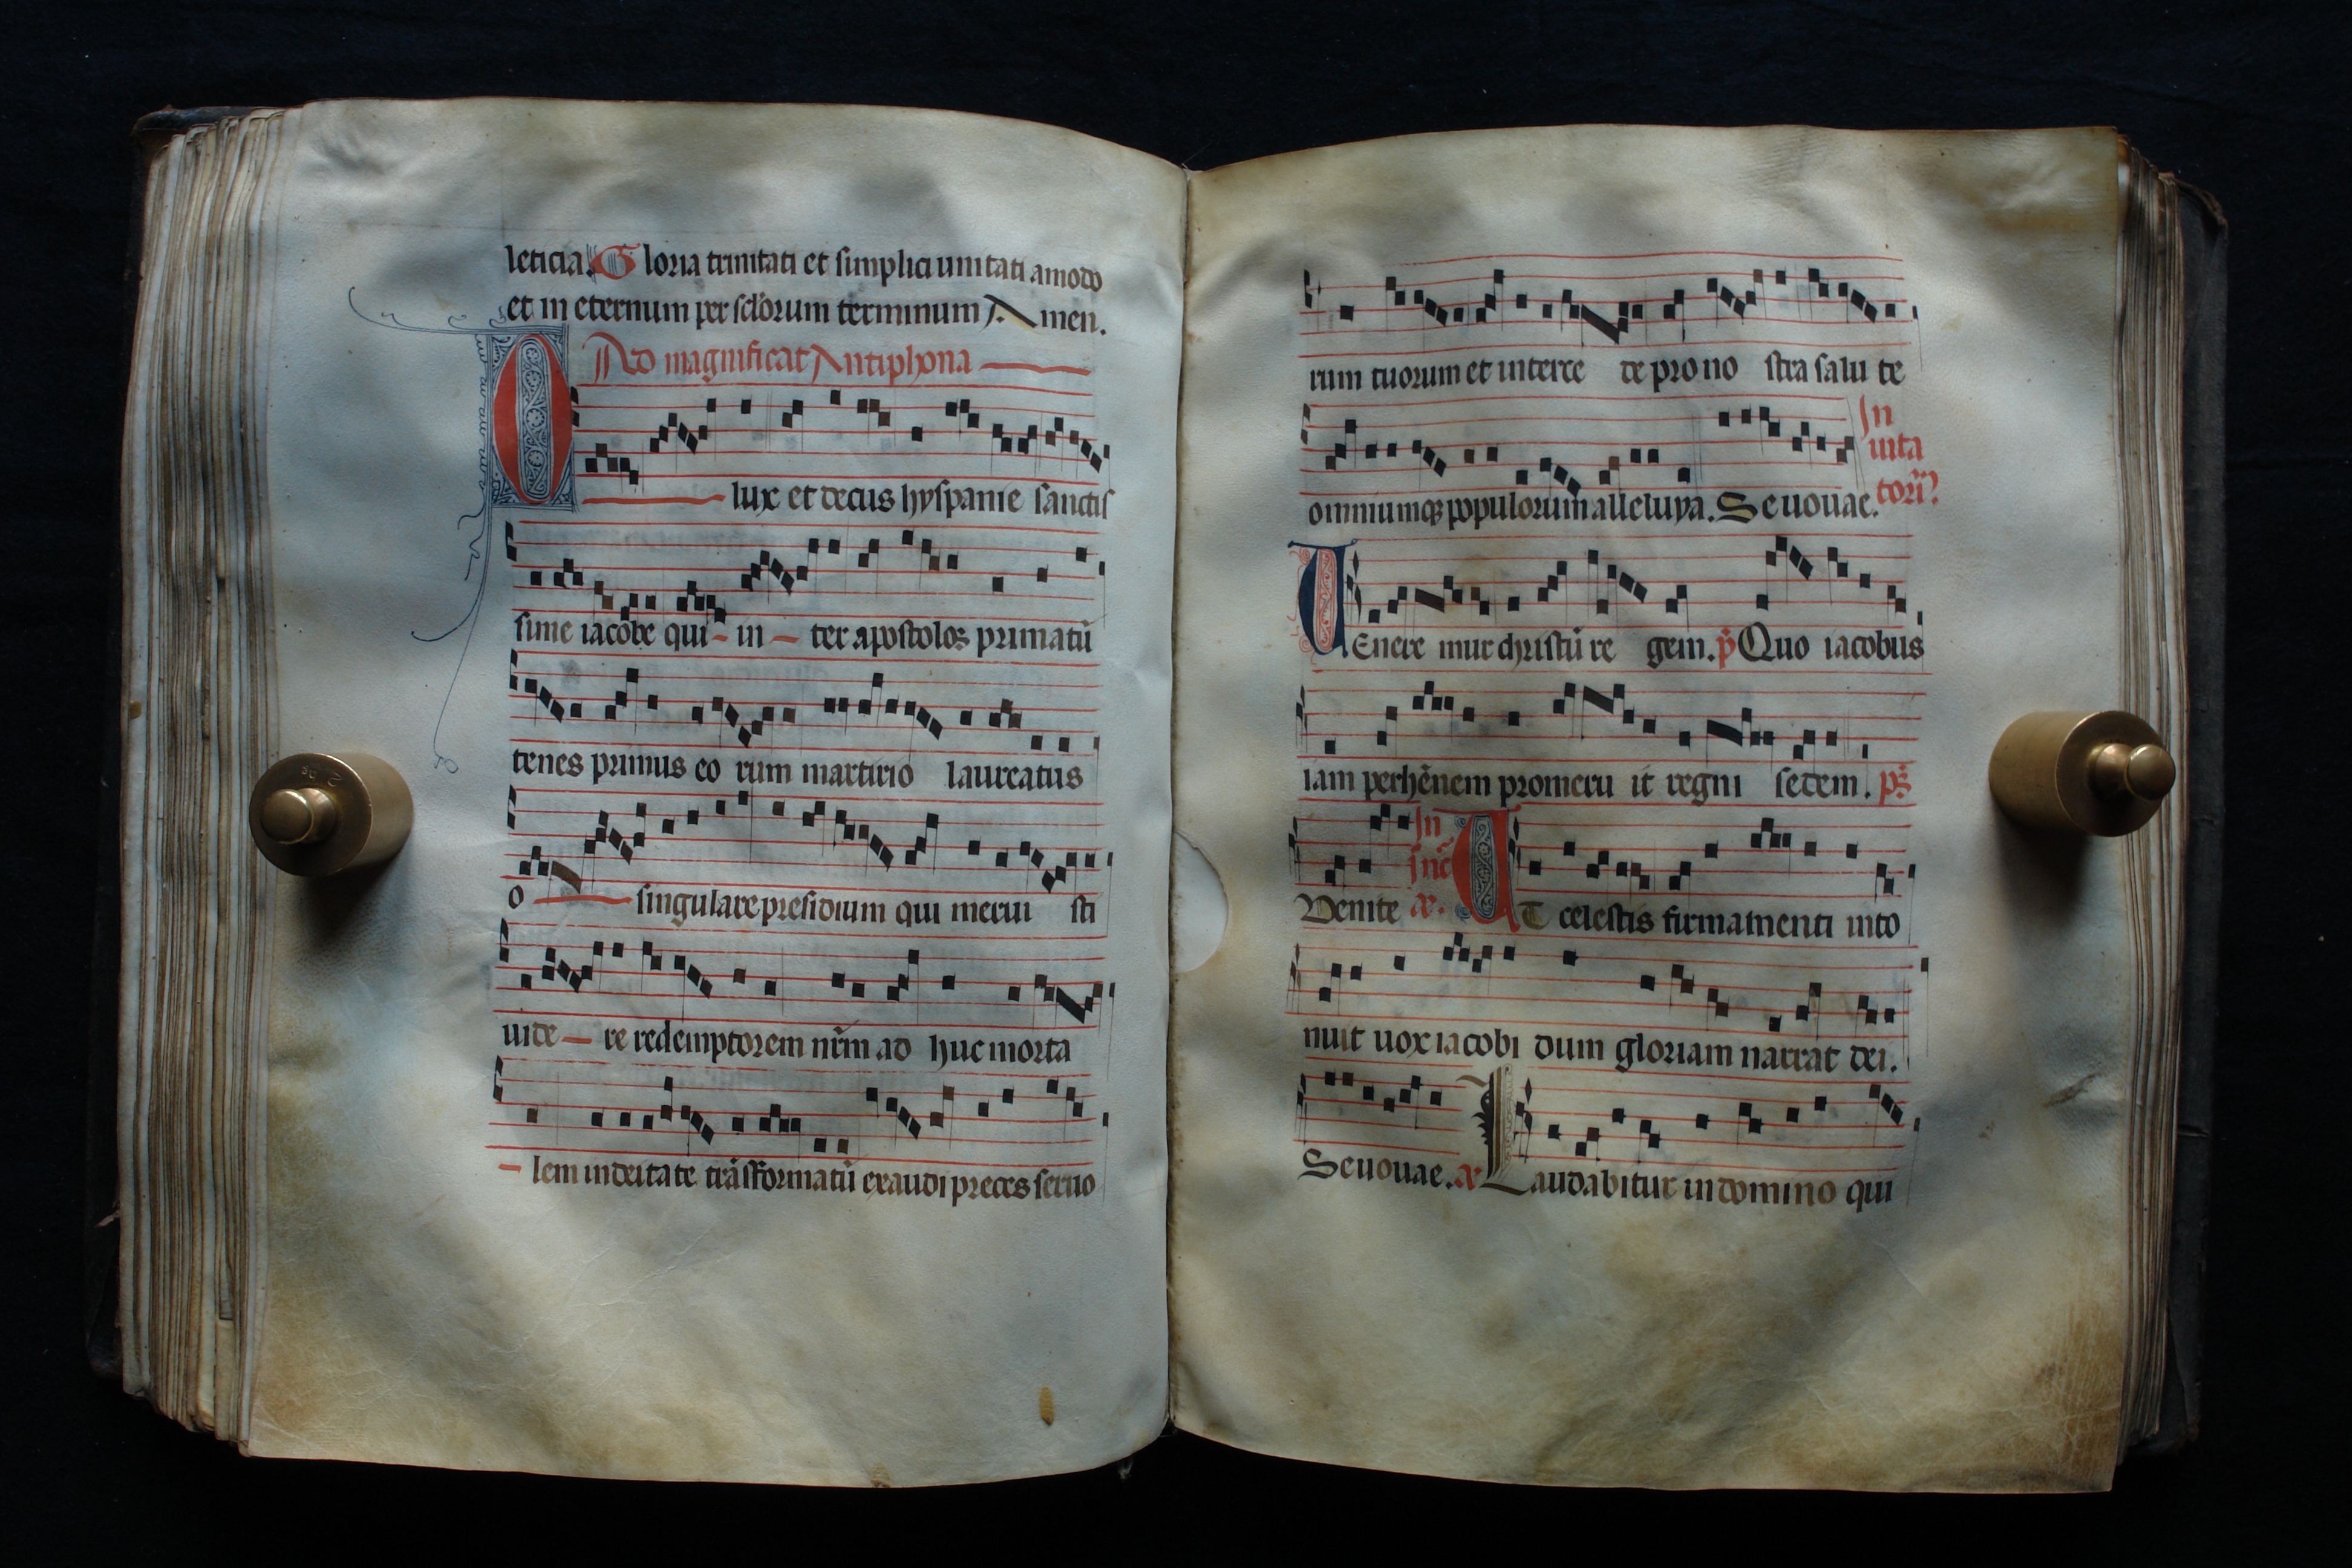 leticia. Gloria trinitati et simplici unitati amodo
et in eternum per sclorum terminum Amen.
Ad magnificat Antiphona
O lux et decus hyspanie sanctis
sime iacobe qui in ter apostolos primatū
tenes primus eo rum martirio laureatus
o singulare presidium qui merui sti
uide re redemptorem nr̄m ad huc morta
lem in deitate trāsformatū exaudi preces seruo
rum tuorum et interce de pro no stra salu te
In
uita
omniumq; populorum alleluya. Seuouae. tori
UEnere mur christū re gem. p̄ Quo iacobus
iam perhēnem promeru it regni sedem. ps̄
In
Venite
UT celestis firmamenti into
nuit uox iacobi dum gloriam narrat dei.
Seuouae. Laudabitur in domino qui